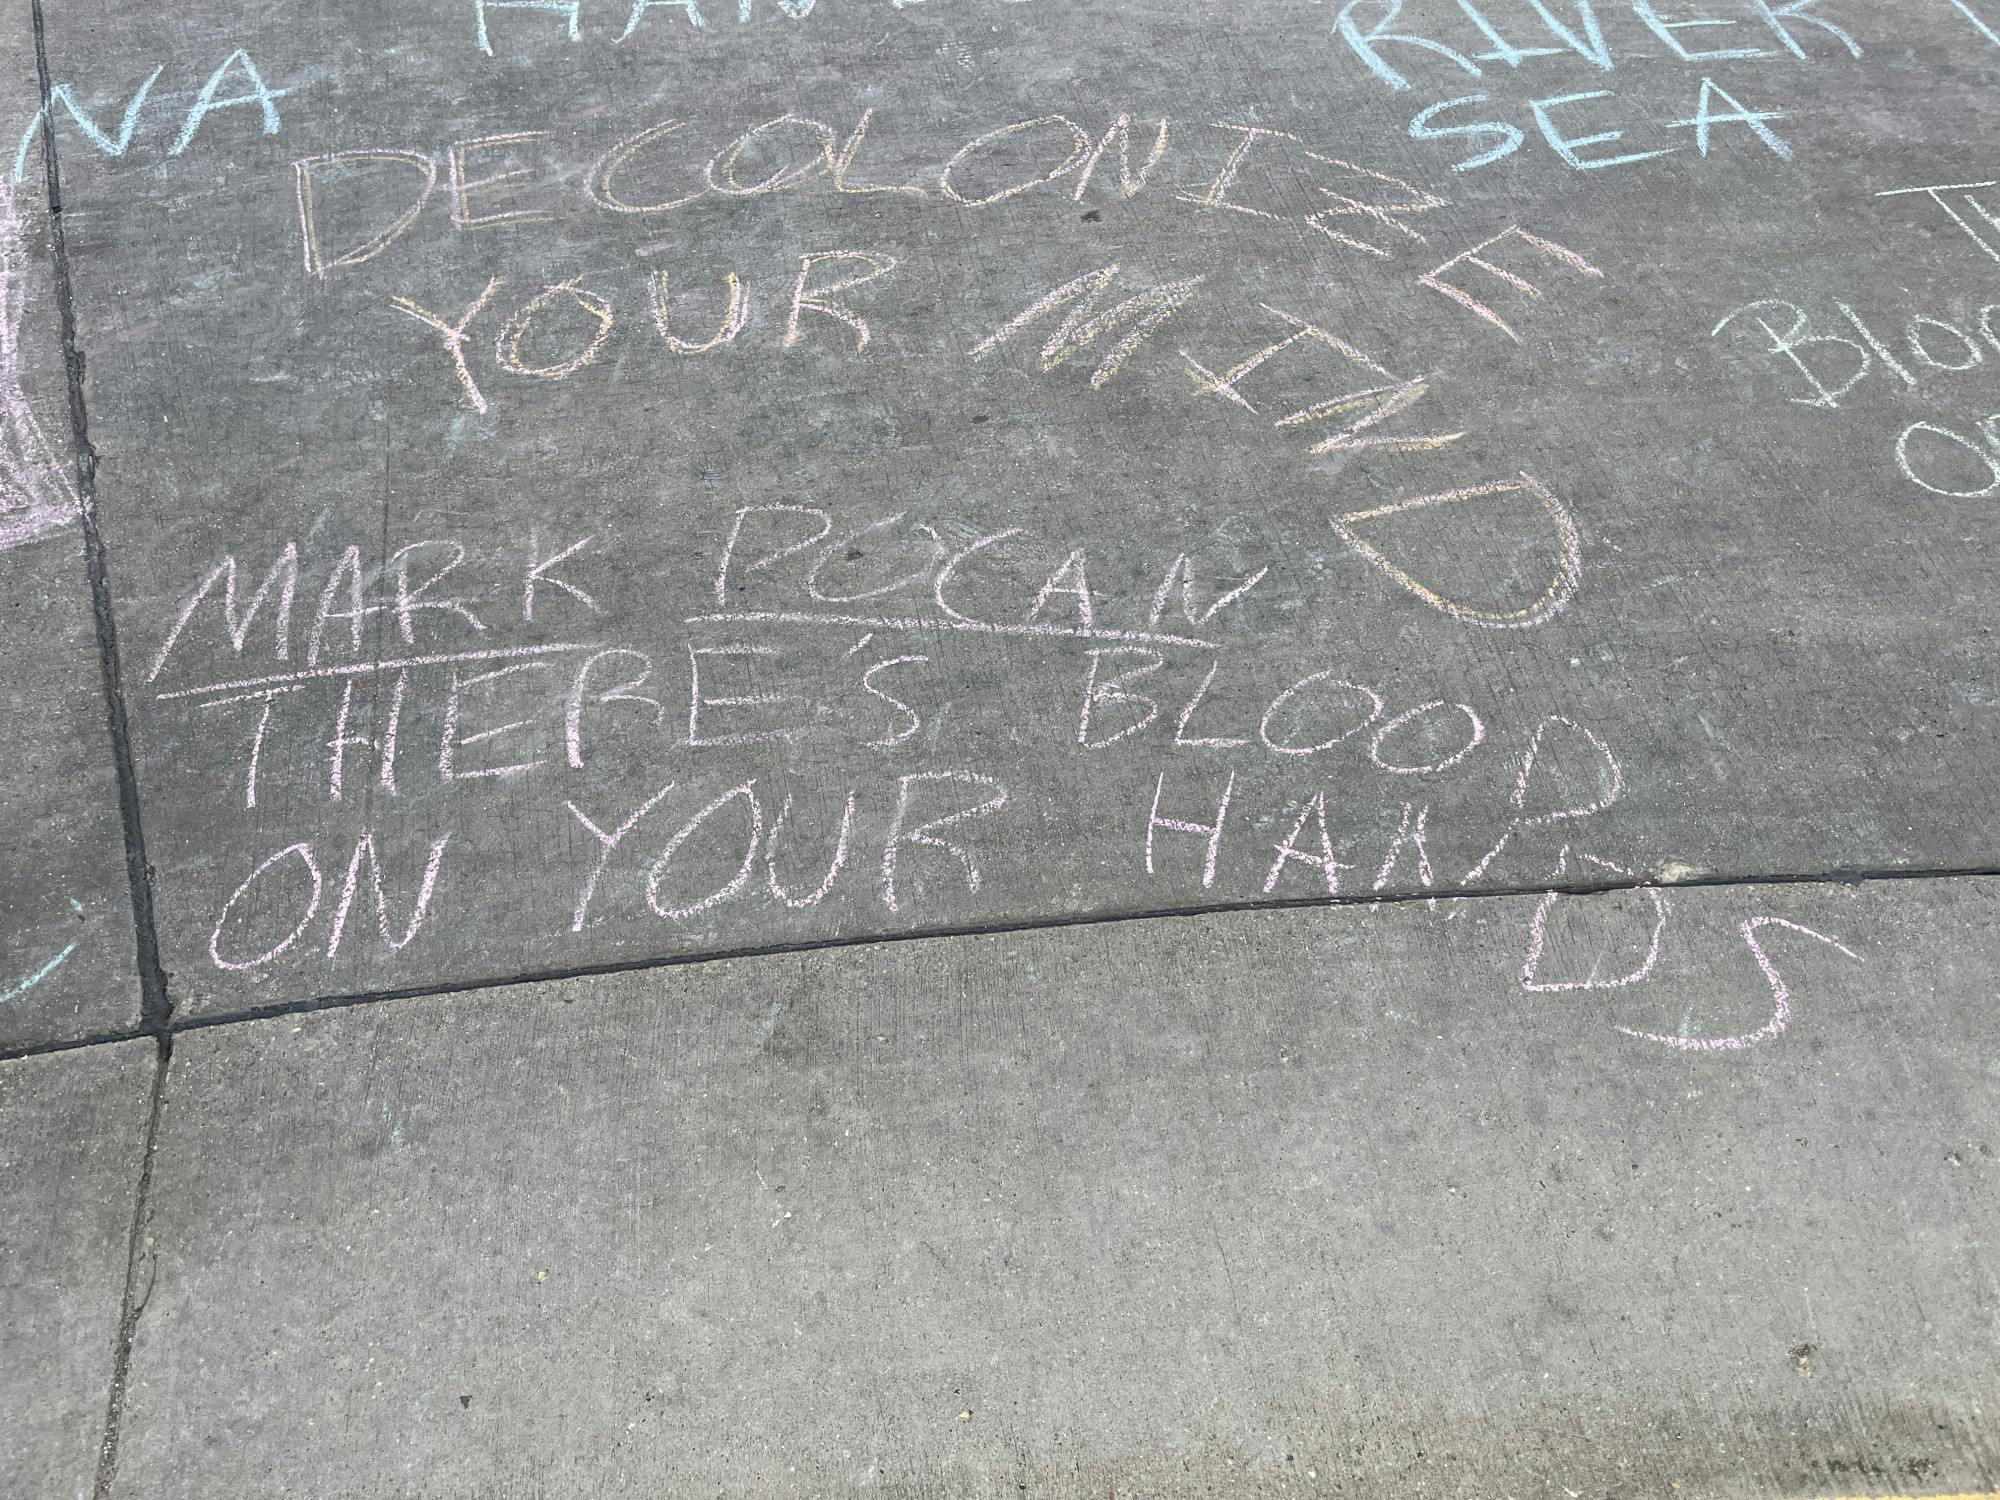 RIVER
SEA
NA
DECOLONIZE
YOUR MIND
MARK POCAN
THERE'S BLOOD
ON YOUR HANDS